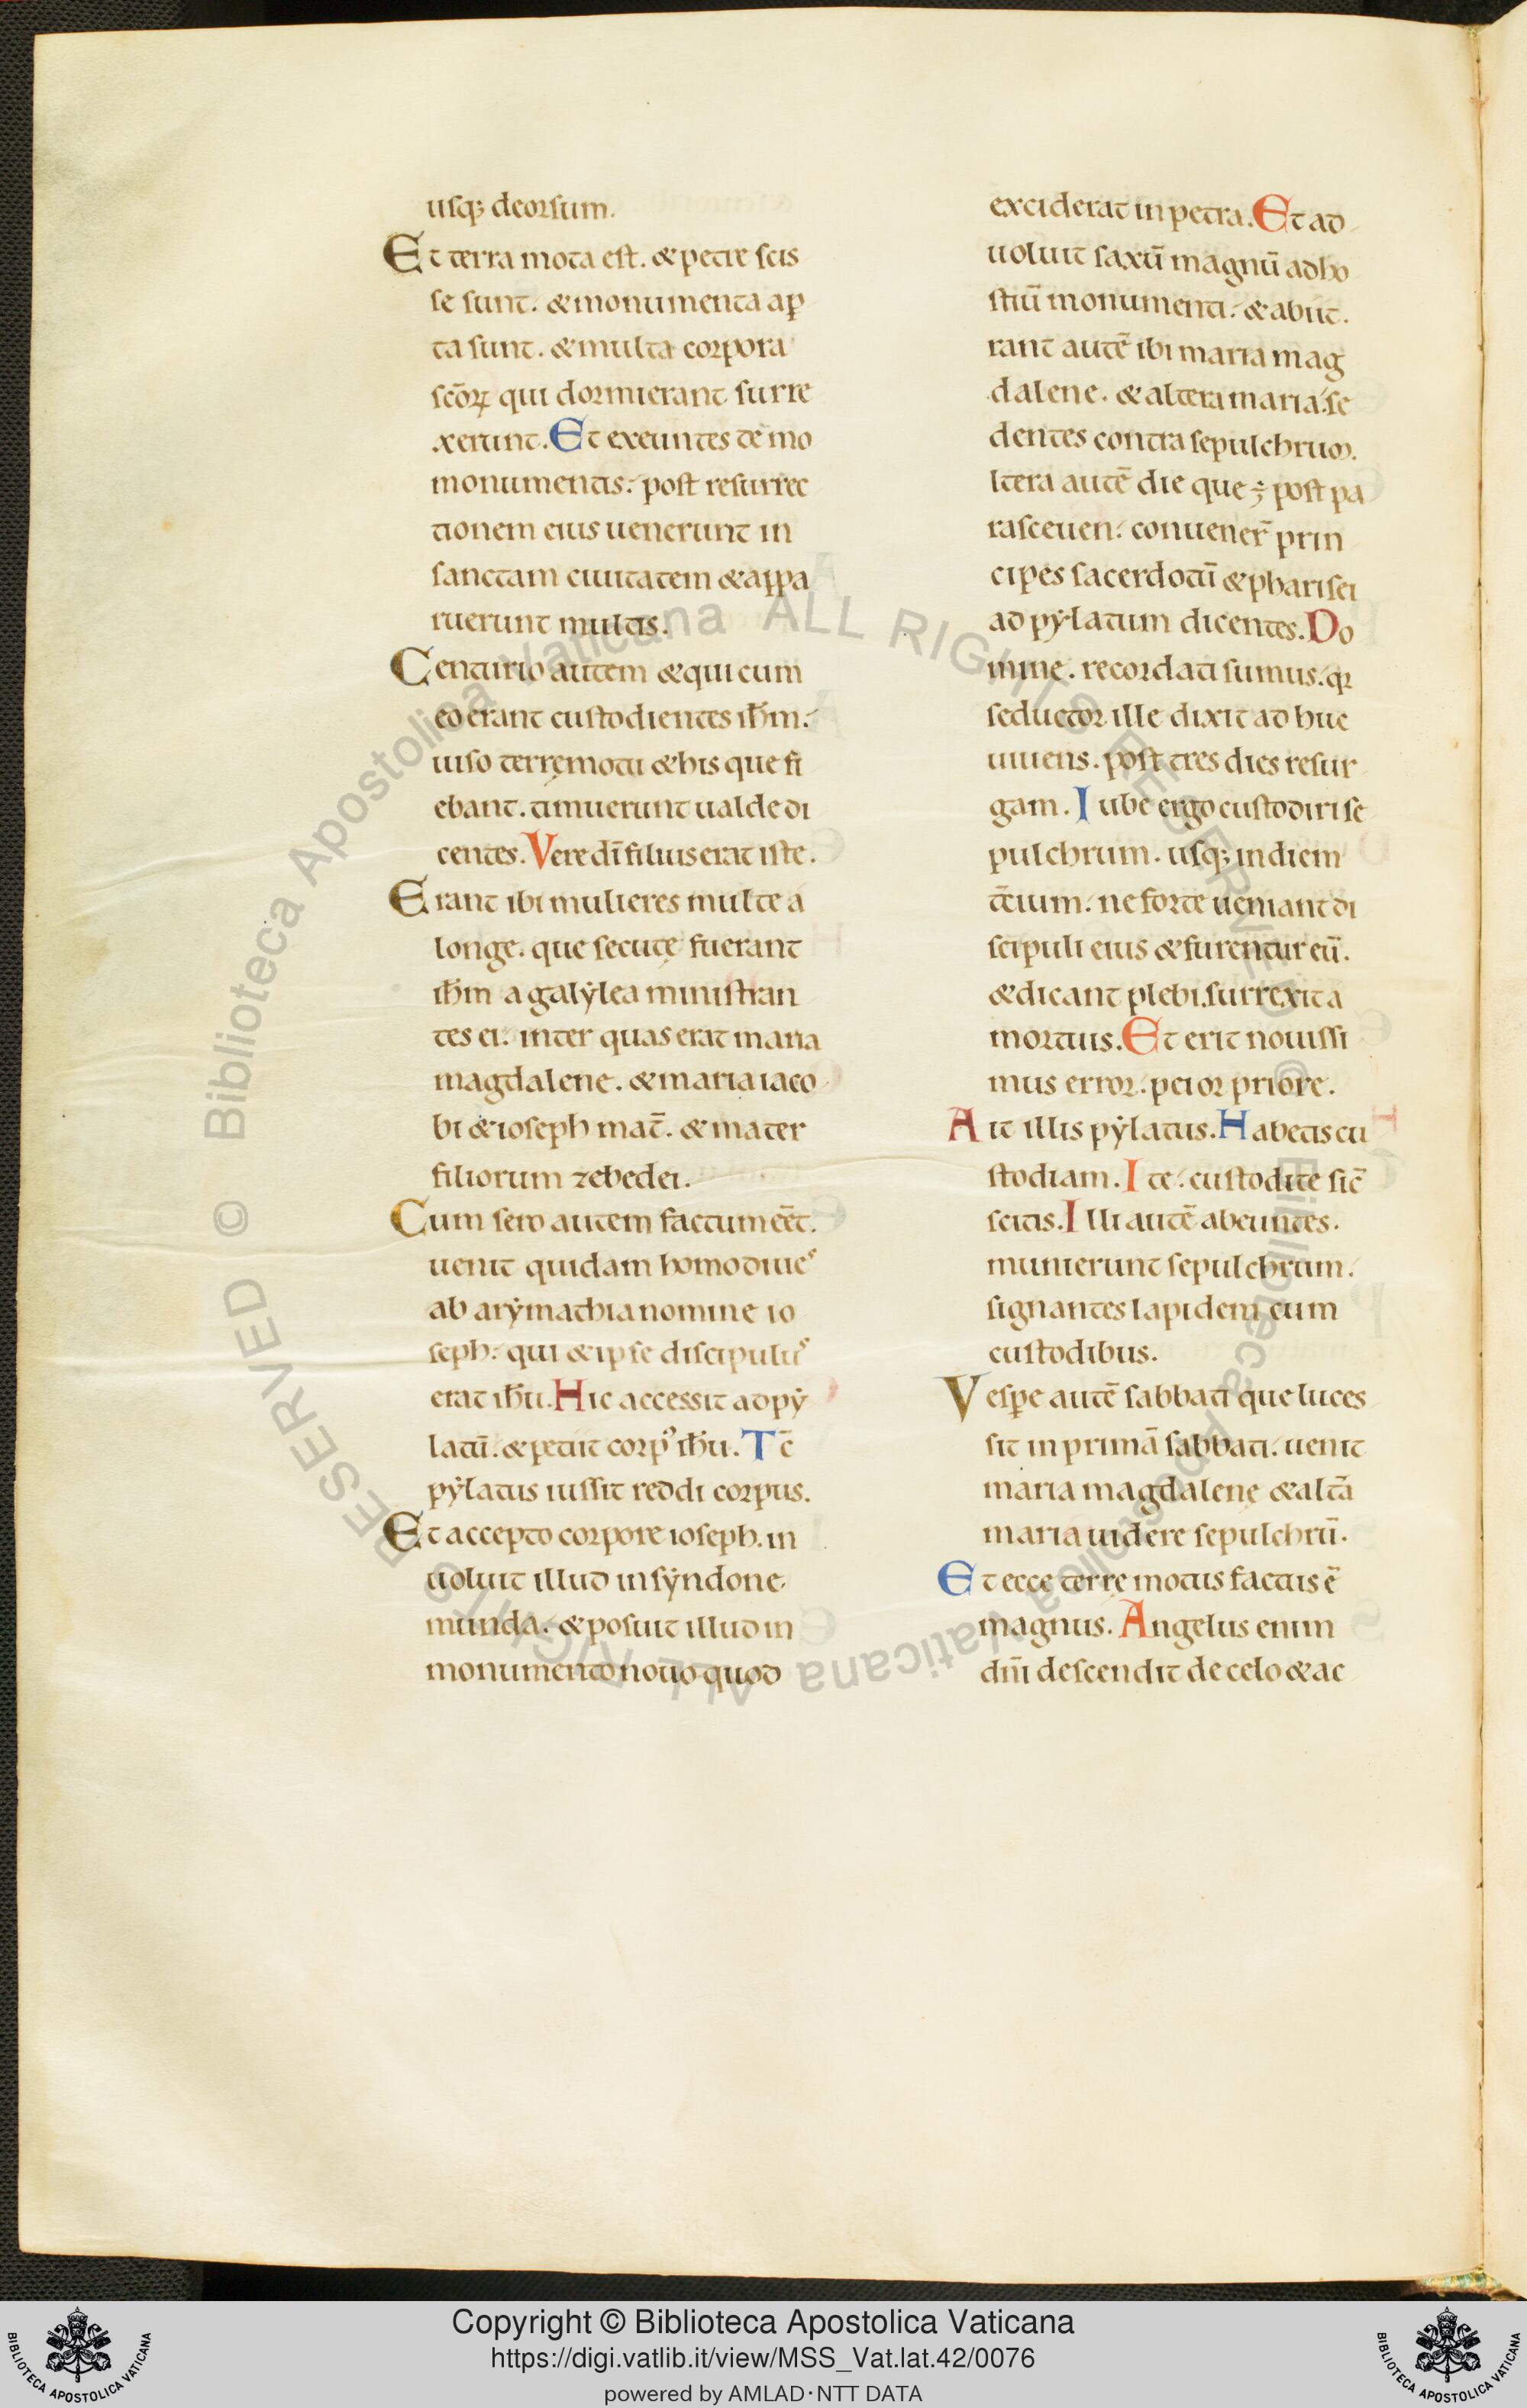 usq; deorsum.
Et terra mota est. & petre scis
se sunt. & monumenta ap̲
ta sunt. & multa corpora
scōꝝ qui dormierant surre
xerunt. Et exeuntes de mo
monumentis. post resurrec
tionem eius uenerunt in
sanctam ciuitatem & appa
ruerunt multis.
Centurio autem & qui cum
eo erant custodientes ihm̄.
uiso terręmotu & his que fi
ebant. timuerunt ualde di
centes. Vere dī filius erat iste.
Erant ibi mulieres multe a
longe. que secutę fuerant
ihm̄ a galẏlea ministran
tes ei. inter quas erat maria
magdalene. & maria iaco
bi & ioseph mat̄. & mater
filiorum zebedei.
Cum sero autem factum eēt.
uenit quidam homo diues
ab arẏmathia nomine io
seph. qui & ipse discipulus
erat ihū. Hic accessit ad pẏ
latū. & petiit corpꝰ ihū. Tc̄
pẏlatus iussit reddi corpus.
Et accepto corpore ioseph. in
uoluit illud in sẏndone
munda. & posuit illud in
monumento nouo quod
exciderat in petra. Et ad
uoluit saxū magnū ad ho
stiū monumenti. & abiit.
rant autē ibi maria mag
dalene. & altera maria. se
dentes contra sepulchrum.
ltera autē die que ÷ post pa
rasceuen. conuener̄ prin
cipes sacerdotū & pharisei
ad pẏlatum dicentes. Do
mine. recordati sumus. qꝛ
seductor ille dixit ad huc
uiuens. post tres dies resur
gam. Iube ergo custodiri se
pulchrum. usq; in diem
t̄cium. ne forte ueniant di
scipuli eius & furentur eū.
& dicant plebi. surrexit a
mortuis. Et erit nouissi
mus error. peior priore.
Ait illis pẏlatus. Habetis cu
stodiam. Ite. custodite sic̄
scitis. Illi autē abeuntes.
munierunt sepulchrum.
signantes lapidem cum
custodibus.
Vesp̲e autē sabbati que luces
sit in primā sabbati. uenit
maria magdalenę & altā
maria uidere sepulchrū.
Et ecce terrę motus factus ē
magnus. Angelus enim
dn̄i descendit de celo & ac
Copyright © Biblioteca Apostolica Vaticana
https://digi.vatlib.it/view/MSS_Vat.lat.42/0076
powered by AMLAD·NTT DATA
BIBLIOTECA APOSTOLICA VATICANA
BIBLIOTECA APOSTOLICA VATICANA
© Biblioteca Apostolica Vaticana ALL RIGHTS RESERVED
© Biblioteca Apostolica Vaticana ALL RIGHTS RESERVED